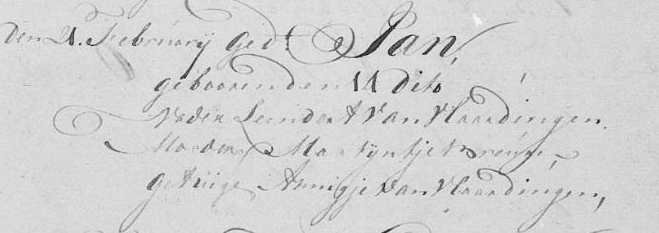 den 21. February ged.t Jan,
gebooren den 14 dito
Vader Leendert Van Vlaardingen.
Moeder Martyntje
getuige Annigje van Vlaardingen,